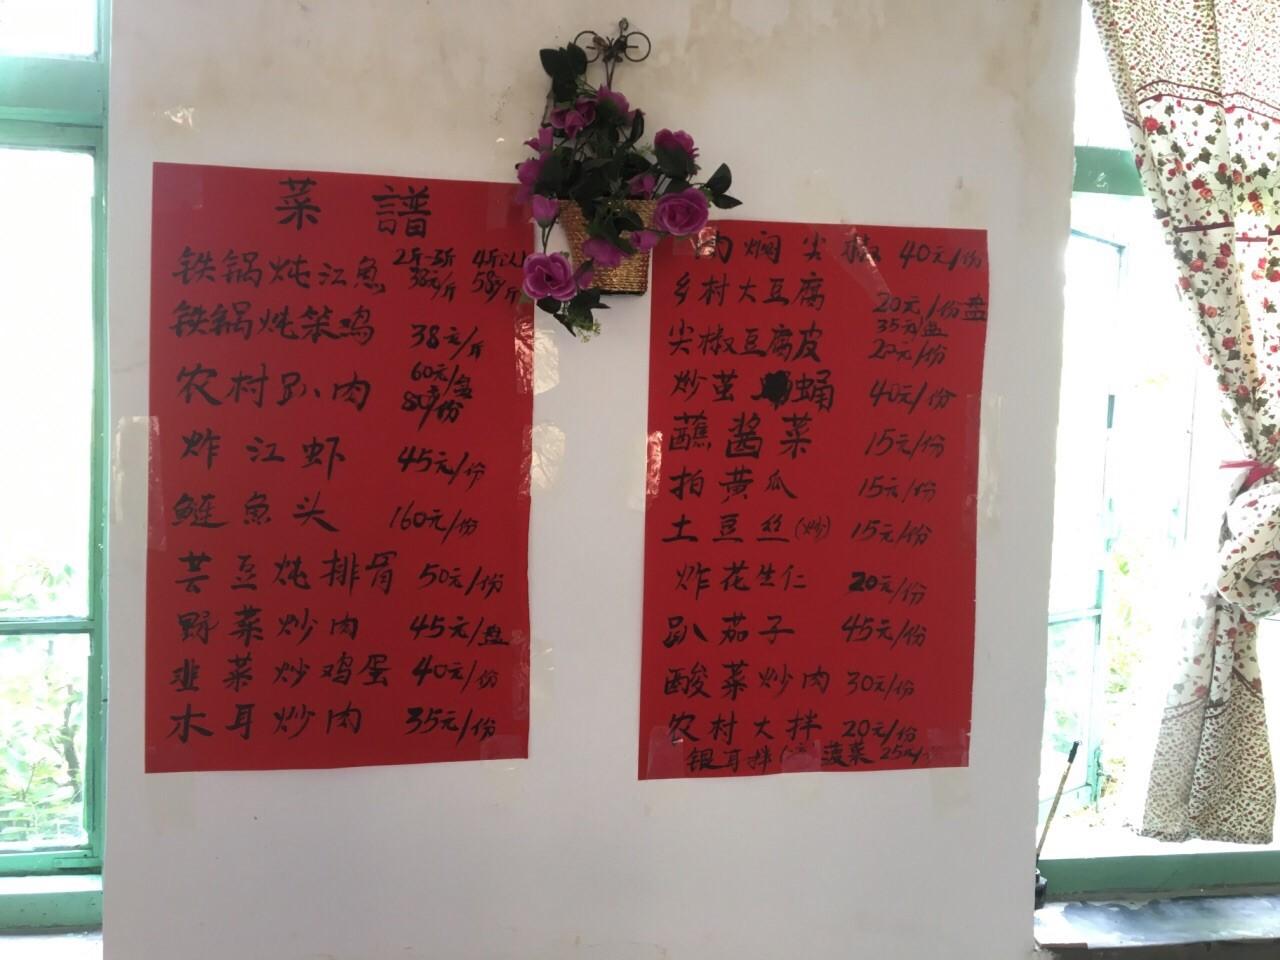 菜譜
铁锅炖江鱼 2斤-3斤 38元/斤 4斤以 58/斤
铁锅炖笨鸡 38元/斤
农村趴肉 60元/盘 80/份
炸江虾 45元/份
鲢鱼头 160元/份
芸豆炖排骨 50元/份
野菜炒肉 45元/盘
韭菜炒鸡蛋 40元/份
木耳炒肉 35元/份
肉焖尖椒 40元/份
乡村大豆腐 20元/份 35元/盘
尖椒豆腐皮 22元/份
炒茧蛹 40元/份
蘸酱菜 15元/份
拍黄瓜 15元/份
土豆丝(炒) 15元/份
炸花生仁 20元/份
趴茄子 45元/份
酸菜炒肉 30元/份
农村大拌 20元/份
银耳拌 菠菜 25元/